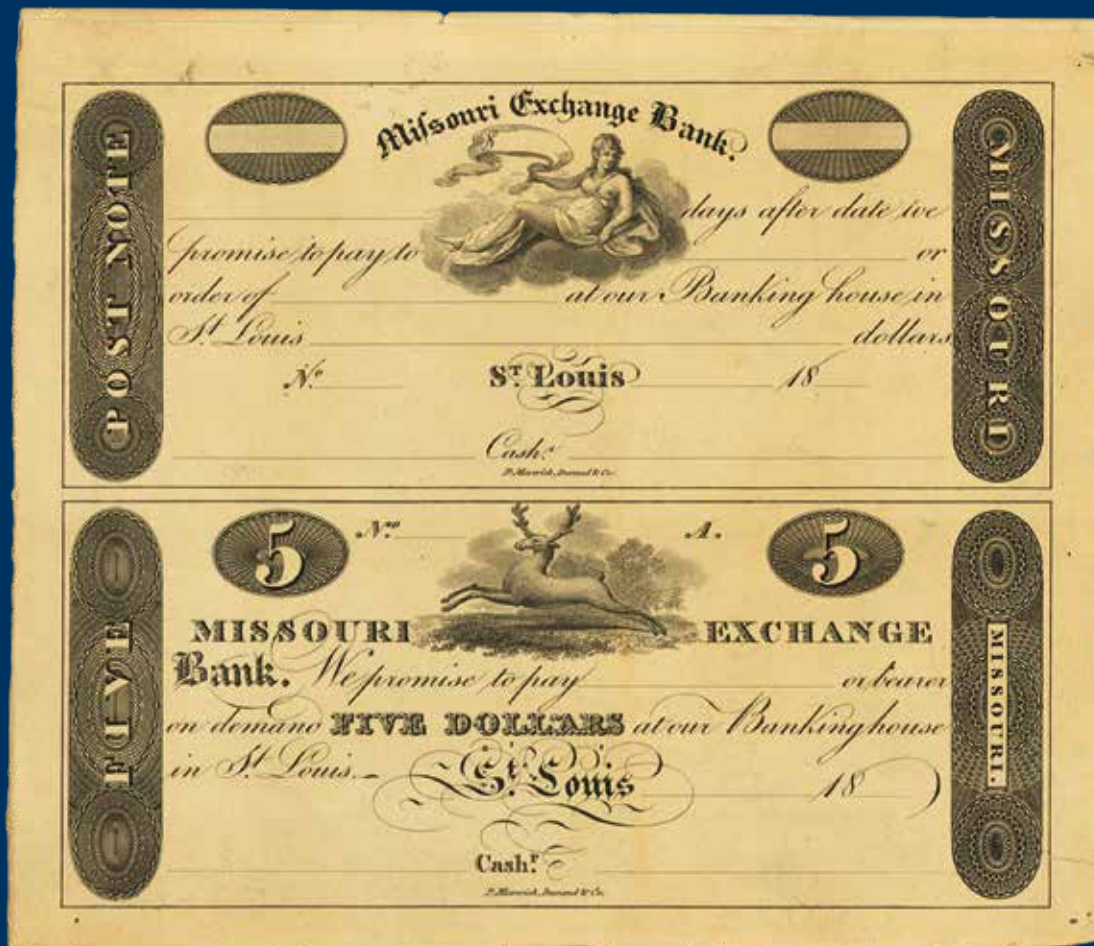 Miſsouri Exchange Bank.
POST NOTE
MISSOURI
days after date we
promise to pay to or
order of at our Banking house in
St Louis dollars
No St Louis 18
Cashr
P. Maverick, Durand & Co.
5 No A. 5
FIVE
MISSOURI.
MISSOURI EXCHANGE
Bank. We promise to pay or bearer
on demand FIVE DOLLARS at our Banking house
in St Louis.
St Louis 18
Cashr
P. Maverick, Durand & Co.